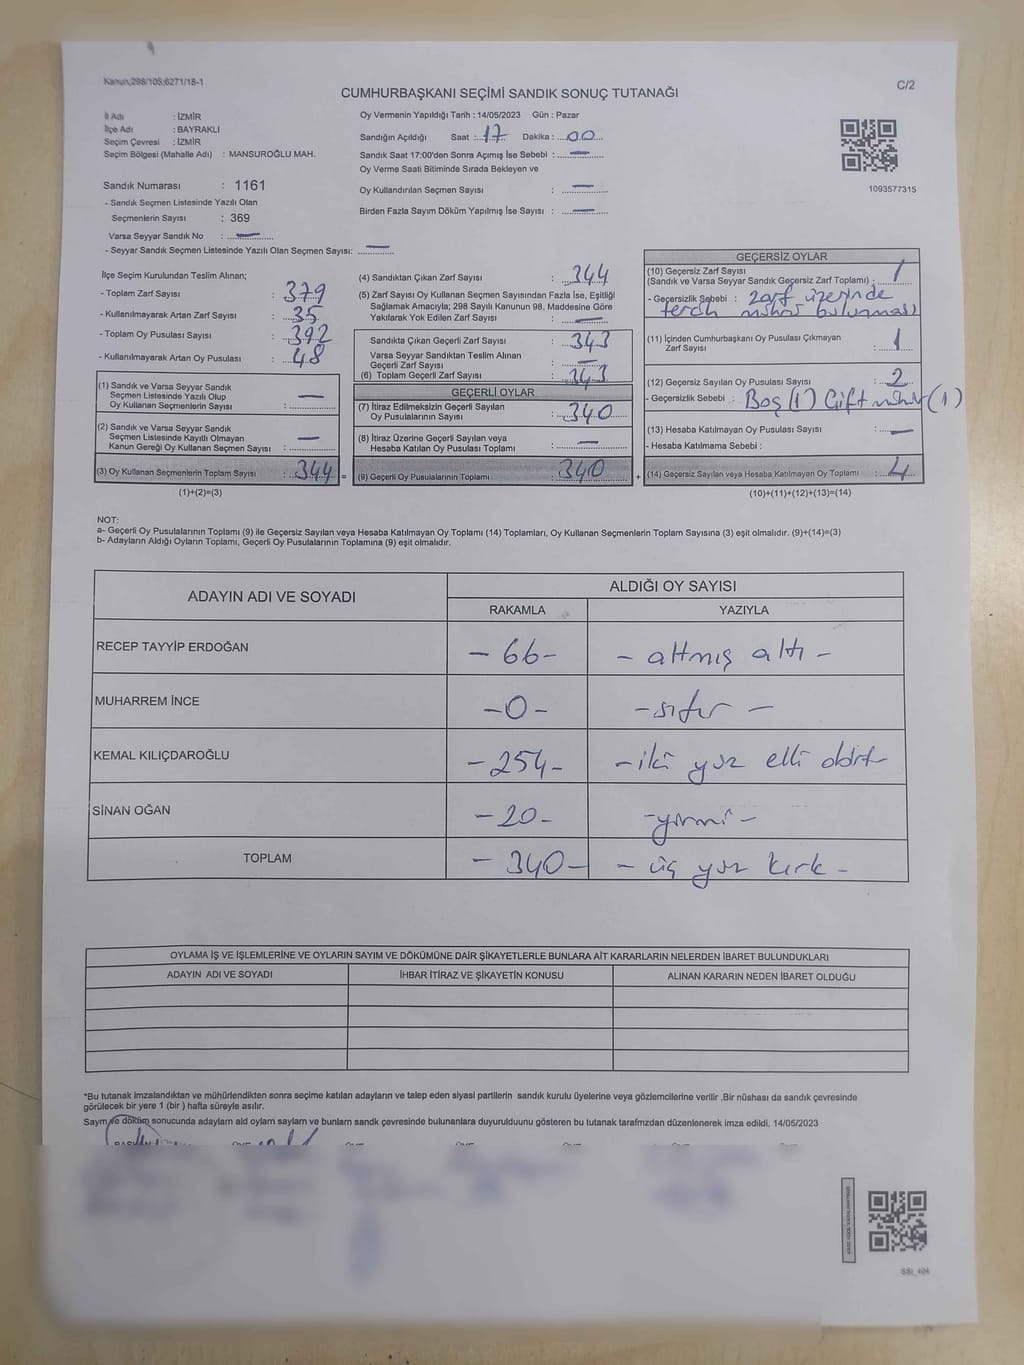 Kanun;298/105;6271/18-1
C/2
CUMHURBAŞKANI SEÇİMİ SANDIK SONUÇ TUTANAĞI
İl Adı : İZMİR
İlçe Adı : BAYRAKLI
Seçim Çevresi : İZMİR
Seçim Bölgesi (Mahalle Adı) : MANSUROĞLU MAH.
Sandık Numarası : 1161
- Sandık Seçmen Listesinde Yazılı Olan
Seçmenlerin Sayısı : 369
Varsa Seyyar Sandık No : —
- Seyyar Sandık Seçmen Listesinde Yazılı Olan Seçmen Sayısı: —
Oy Vermenin Yapıldığı Tarih : 14/05/2023 Gün : Pazar
Sandığın Açıldığı Saat : 17 Dakika : 00
Sandık Saat 17:00'den Sonra Açımış İse Sebebi : —
Oy Verme Saati Bitiminde Sırada Bekleyen ve
Oy Kullandırılan Seçmen Sayısı : —
Birden Fazla Sayım Döküm Yapılmış İse Sayısı : —
1093577315
İlçe Seçim Kurulundan Teslim Alınan;
- Toplam Zarf Sayısı : 379
- Kullanılmayarak Artan Zarf Sayısı : 35
- Toplam Oy Pusulası Sayısı : 392
- Kullanılmayarak Artan Oy Pusulası : 48
(1) Sandık ve Varsa Seyyar Sandık
Seçmen Listesinde Yazılı Olup
Oy Kullanan Seçmenlerin Sayısı : —
(2) Sandık ve Varsa Seyyar Sandık
Seçmen Listesinde Kayıtlı Olmayan
Kanun Gereği Oy Kullanan Seçmen Sayısı : —
(3) Oy Kullanan Seçmenlerin Toplam Sayısı : 344 =
(1)+(2)=(3)
(4) Sandıktan Çıkan Zarf Sayısı : 344
(5) Zarf Sayısı Oy Kullanan Seçmen Sayısından Fazla İse, Eşitliği
Sağlamak Amacıyla; 298 Sayılı Kanunun 98. Maddesine Göre
Yakılarak Yok Edilen Zarf Sayısı : —
Sandıkta Çıkan Geçerli Zarf Sayısı : 343
Varsa Seyyar Sandıktan Teslim Alınan
Geçerli Zarf Sayısı : —
(6) Toplam Geçerli Zarf Sayısı : 343
GEÇERLİ OYLAR
(7) İtiraz Edilmeksizin Geçerli Sayılan
Oy Pusulalarının Sayısı : 340
(8) İtiraz Üzerine Geçerli Sayılan veya
Hesaba Katılan Oy Pusulası Toplamı : —
(9) Geçerli Oy Pusulalarının Toplamı : 340 +
GEÇERSİZ OYLAR
(10) Geçersiz Zarf Sayısı
(Sandık ve Varsa Seyyar Sandık Geçersiz Zarf Toplamı) : 1
- Geçersizlik Sebebi : zarf üzerinde
tercih mührü bulunması
(11) İçinden Cumhurbaşkanı Oy Pusulası Çıkmayan
Zarf Sayısı : 1
(12) Geçersiz Sayılan Oy Pusulası Sayısı : 2
- Geçersizlik Sebebi : Boş (1) Çift mühür (1)
(13) Hesaba Katılmayan Oy Pusulası Sayısı : —
- Hesaba Katılmama Sebebi :
(14) Geçersiz Sayılan veya Hesaba Katılmayan Oy Toplamı : 4
(10)+(11)+(12)+(13)=(14)
NOT:
a- Geçerli Oy Pusulalarının Toplamı (9) ile Geçersiz Sayılan veya Hesaba Katılmayan Oy Toplamı (14) Toplamları, Oy Kullanan Seçmenlerin Toplam Sayısına (3) eşit olmalıdır. (9)+(14)=(3)
b- Adayların Aldığı Oyların Toplamı, Geçerli Oy Pusulalarının Toplamına (9) eşit olmalıdır.
ADAYIN ADI VE SOYADI ALDIĞI OY SAYISI
RAKAMLA YAZIYLA
RECEP TAYYİP ERDOĞAN - 66 - - altmış altı -
MUHARREM İNCE - 0 - - sıfır -
KEMAL KILIÇDAROĞLU - 254 - - iki yüz elli dört -
SİNAN OĞAN - 20 - - yirmi -
TOPLAM - 340 - - üç yüz kırk -
OYLAMA İŞ VE İŞLEMLERİNE VE OYLARIN SAYIM VE DÖKÜMÜNE DAİR ŞİKAYETLERLE BUNLARA AİT KARARLARIN NELERDEN İBARET BULUNDUKLARI
ADAYIN ADI VE SOYADI İHBAR İTİRAZ VE ŞİKAYETİN KONUSU ALINAN KARARIN NEDEN İBARET OLDUĞU
*Bu tutanak imzalandıktan ve mühürlendikten sonra seçime katılan adayların ve talep eden siyasi partilerin sandık kurulu üyelerine veya gözlemcilerine verilir .Bir nüshası da sandık çevresinde
görülecek bir yere 1 (bir ) hafta süreyle asılır.
Sayım ve döküm sonucunda adayların ald oylam sayları ve bunların sandık çevresinde bulunanlara duyurulduunu gösteren bu tutanak tarafmzdan düzenlenerek imza edildi. 14/05/2023
SSI_404